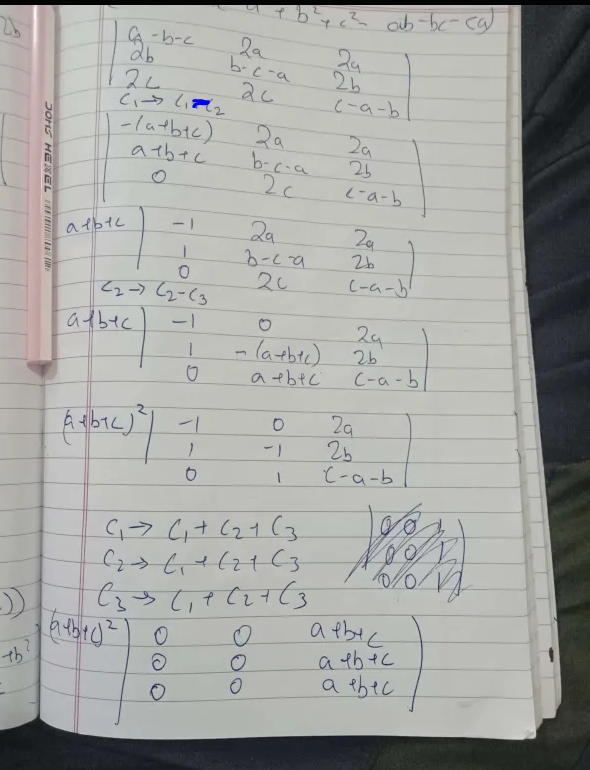 a + b² + c² - ab - bc - ca)
2b
| a-b-c 2a 2a |
| 2b b-c-a 2b |
| 2c 2c c-a-b |
C₁ → C₁ - C₂
| -(a+b+c) 2a 2a |
| a+b+c b-c-a 2b |
| 0 2c c-a-b |
a+b+c | -1 2a 2a |
| 1 b-c-a 2b |
| 0 2c c-a-b |
C₂ → C₂-C₃
a+b+c | -1 0 2a |
| 1 -(a+b+c) 2b |
| 0 a+b+c c-a-b |
(a+b+c)² | -1 0 2a |
| 1 -1 2b |
| 0 1 c-a-b |
C₁ → C₁ + C₂ + C₃
C₂ → C₁ + C₂ + C₃
C₃ → C₁ + C₂ + C₃
| 0 0 1 |
| 0 0 1 |
| 0 0 1 |
(a+b+c)² | 0 0 a+b+c |
| 0 0 a+b+c |
| 0 0 a+b+c |
))
+b²